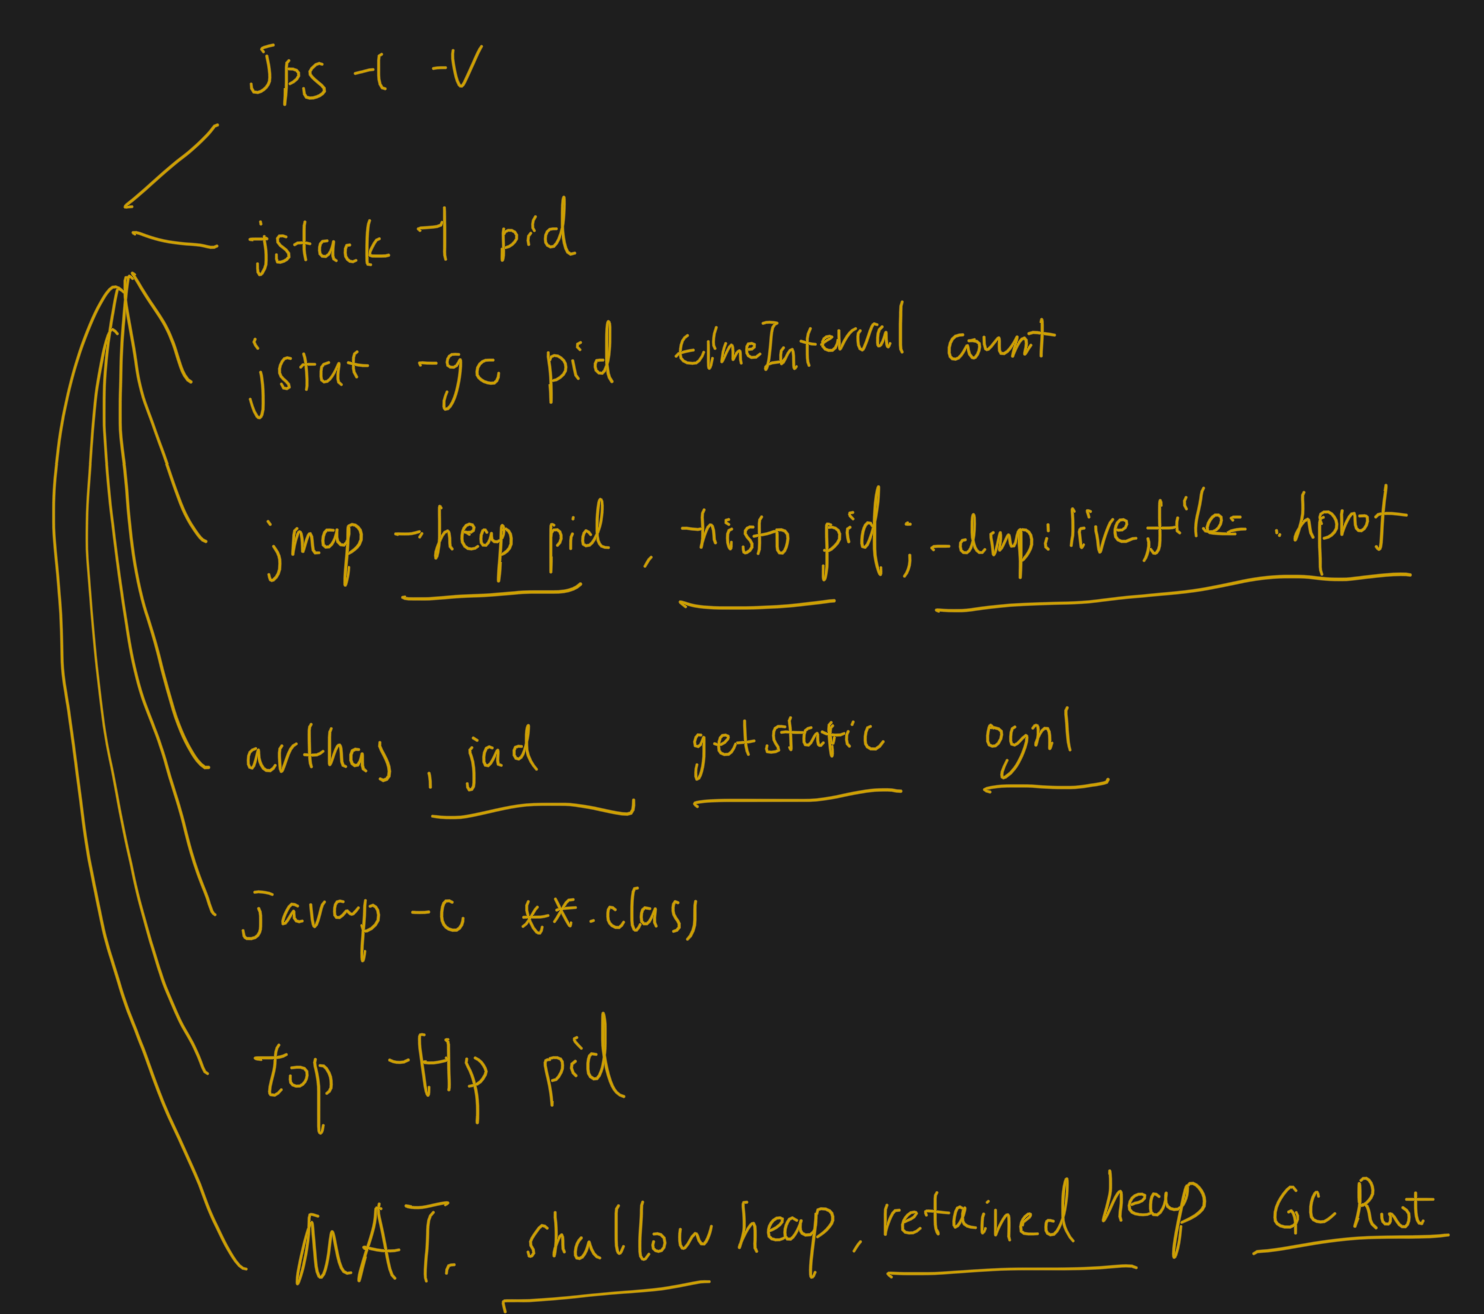 jps -l -v
jstack -l pid
jstat -gc pid timeInterval count
jmap -heap pid, -histo pid; -dmp:live,file= .hprof
arthas, jad getstatic ognl
javap -c **.class
top -Hp pid
MAT. shallow heap, retained heap GC Root